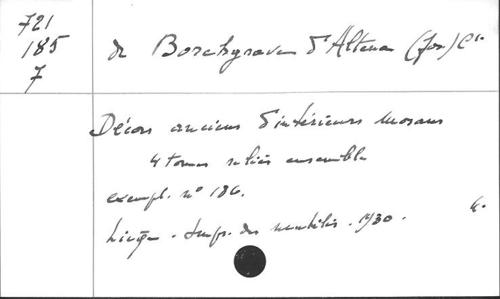 721
185
7
de Borchgrave d'Altena (Jos) Cte
Décors anciens d'intérieurs mosans
4 tomes reliés ensemble
exempl. n° 186.
Liège. Impr. des mutilés. 1930.